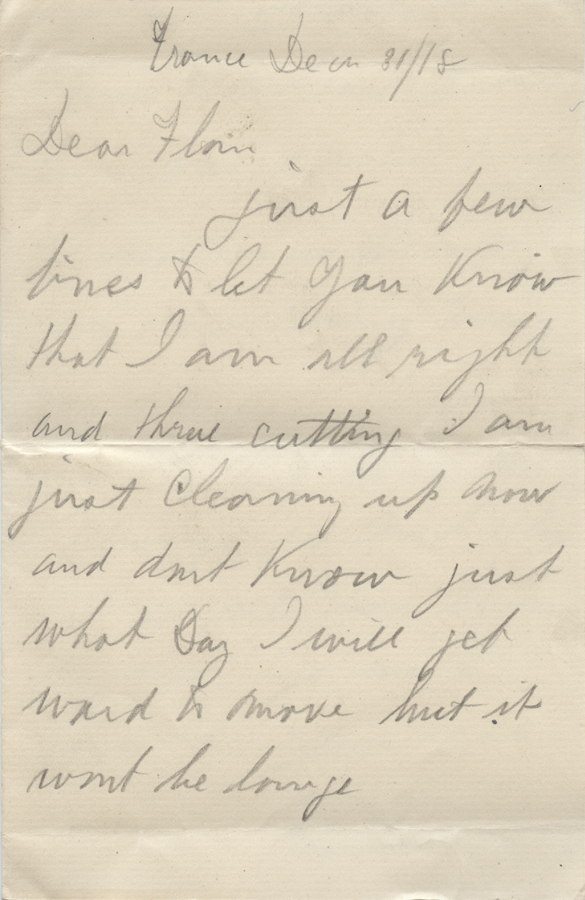 France Decm 31/18
Dear Flom
just a few
lines to let you Know
that I am all right
and thrue cutting I am
just Cleaning up now
and dont Know just
what Day I will get
ward to move but it
wont be longe